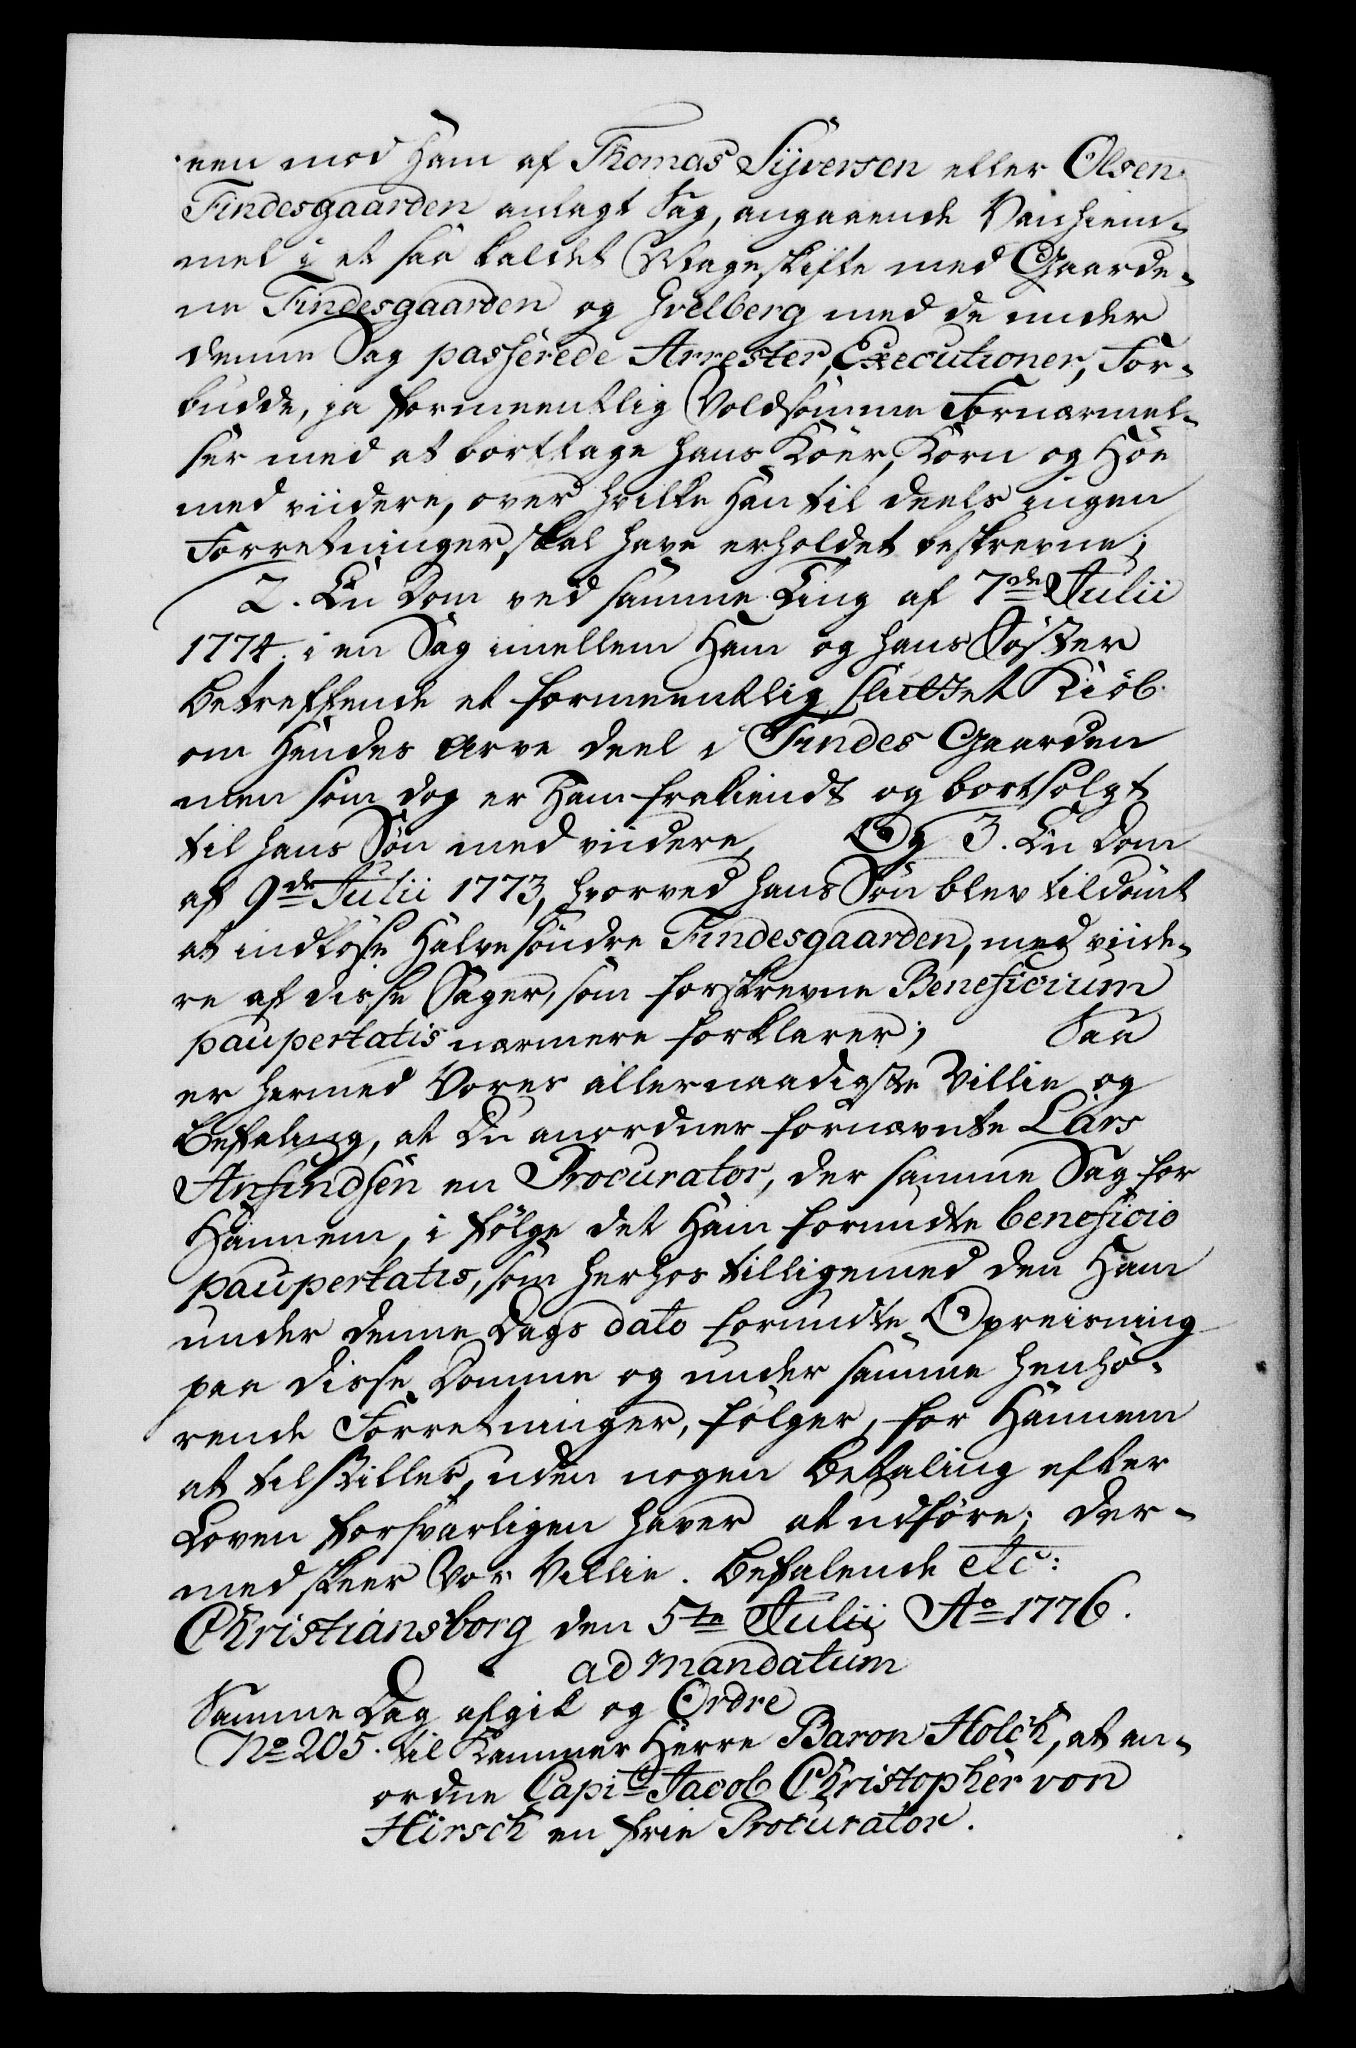 een mod Ham af Thomas Sÿversen eller Olsen
Findesgaarden anlagt Sag, angaaende
mel i et saa kaldet Mageskifte med Gaarde-
ne Findesgaarden og Hvelberg med de under
denne Sag passerede Arrester, Executioner, For-
budde, ja formeentlig Voldsomme Fornærmel-
ser med at borttage hans Köer, Korn og Höe
med viidere, over hvilke Han til deels ingen
Forretninger, skal have erholdet beskrevne;
2. En Dom ved samme Ting af 7de Julii
1774. i en Sag imellem Ham og hans Söster
betreffende et formeentlig sluttet Kiöb
om Hendes Arve deel i Findes Gaarden
men som dog er Ham frakiendt og bortsolgt
til hans Sön med viidere, Og 3. En Dom
af 9de Julii 1773, hvorved hans Sön blev tildömt
at indlöse Halve söndre Findesgaarden, med viide-
re af disse Sager, som forskrevne Beneficium
paupertatis nærmere forklarer; Saa
er hermed Vores allernaadigste Villie og
Befaling, at Du anordner fornævnte Lars
Anfindsen en Procurator, der samme Sag for
Hannem, i fölge det Ham forundte beneficio
paupertatis, som herhos tilligemed den Ham
under denne Dags dato forundte Opreisning
paa disse Domme og under samme henhö-
rende Forretninger, fölger, for Hannem
at tilstilles, uden nogen Betaling efter
Loven forsvarligen haver at udföre; Der-
med skeer Vor Villie. Befalende etc:
Christiansborg den 5te Julii Ao 1776.
ad mandatum
Samme Dag afgik og Ordre
No 205. til Kammer Herre Baron Holck, at an-
ordne Capit Jacob Christopher von
Hirsch en frie Procurator.